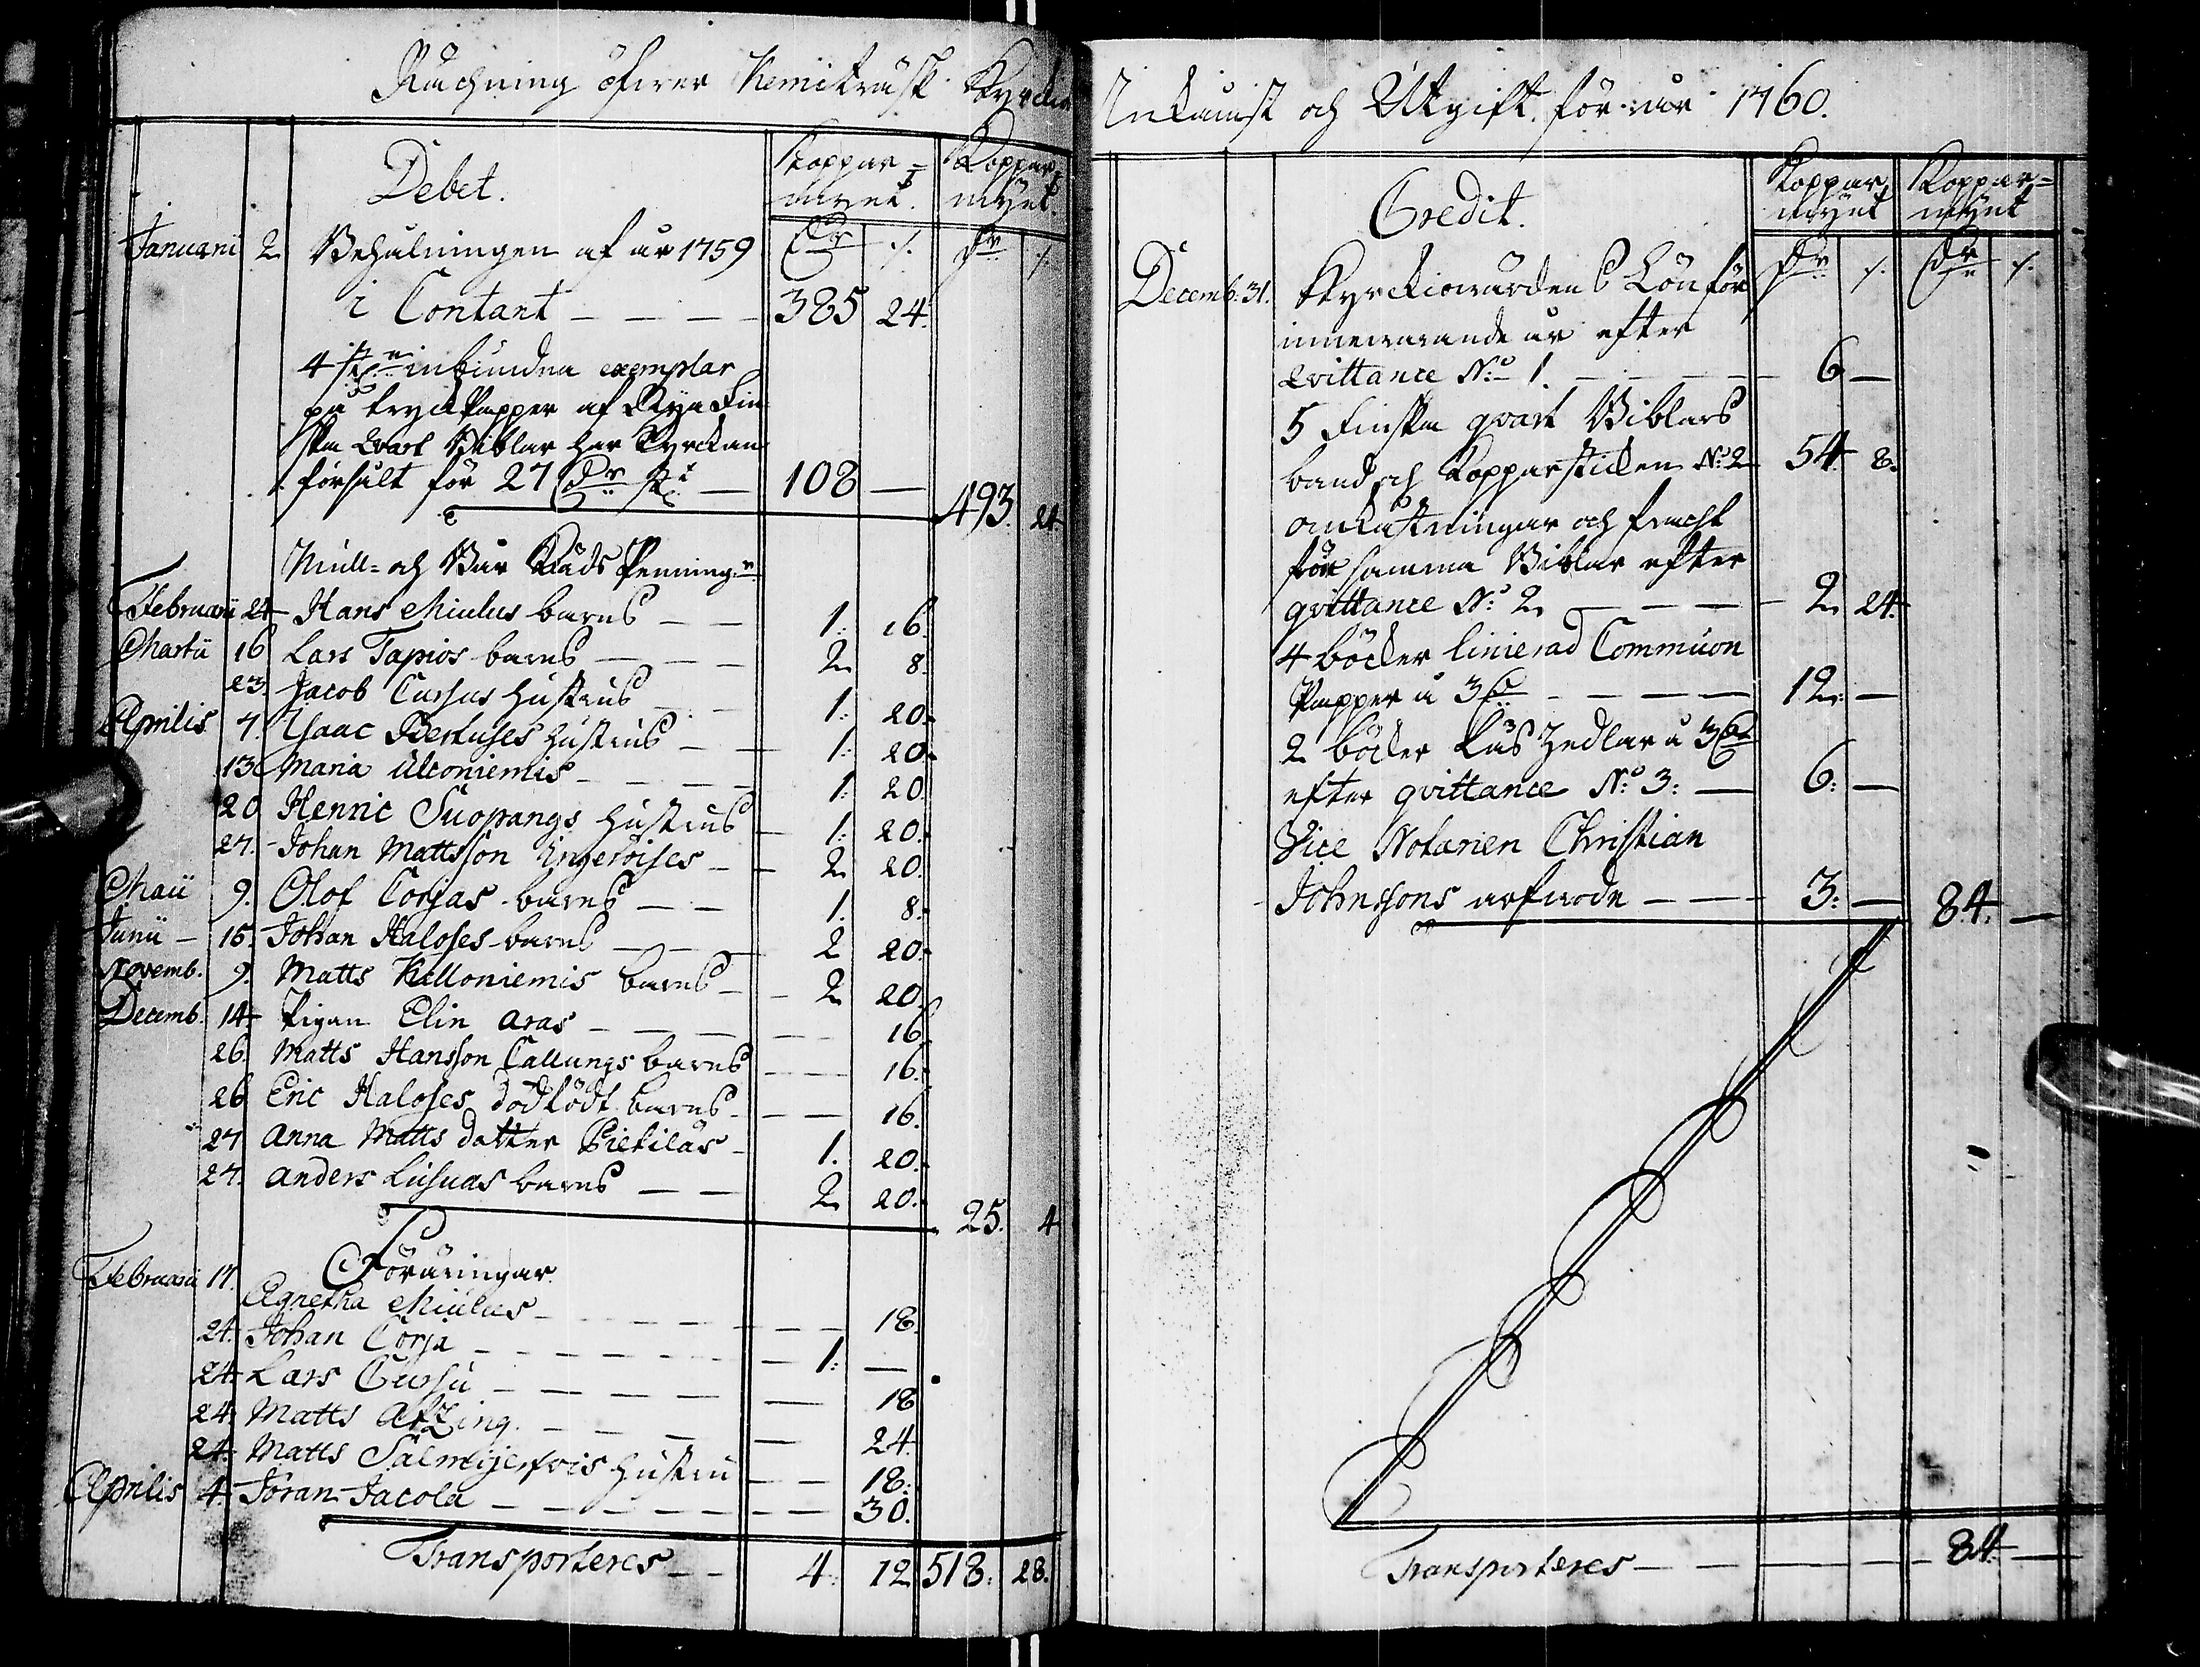 Räckning öfwer Kemiträsk Kyrckio
Debet.
Koppar= mynt. Koppar mynt.
Dr ./. Dr ./.
Januarii 2 Behålningen af år 1759
i Contant — — — 385 24.
4 st:n inbundna exemplar
på tryckPapper af Nya Fin
ska Qvart Biblar har Kyrckan
försält för 27 Dr st — 108 —
493. 24
Mull= och Bår Kläds Penning:r
Februarii 24 Hans Miulus barns — — 1: 16.
Martii 16 Lars Tapios barns — — — 2 8.
23. Jacob Cursus hustrus — — 1: 20.
Aprilis 7. Isaac Bertuses hustrus — — 1: 20.
13. Maria Ulconiemis — — — 1: 20.
20 Henric Suopangs hustrus — 1: 20.
27. Johan Mattsson Ungeröises — — 2 20.
Maii 9. Olof Corjas barns — — 1. 8.
Junii — 15. Johan Haloses barns — — 2 20.
Novemb. 9. Matts Kelloniemis barns — — 2 20.
Decemb. 14 Pigan Elin Aras — — — 16.
26. Matts Hansson Tallungs barns — — 16.
26 Eric Haloses dödfödt barns — — 16.
27 Anna Matts dotter Pietilas — 1. 20.
27. Anders Lusuas barns — — 2 20.
25. 4
Föräringar
Februarii 17. Agnetha Miulus — — — 18.
24. Johan Corja — — — 1: —
24. Lars Cursu — — — 18
24. Matts Atzing. — — — 24.
24. Matts Salmijerfvis hustru — — 18.
Aprilis 4. Jöran Jacola — — — 30.
Transporteres — — 4. 12 518. 28.
Inkomst och Utgift för år 1760.
Credit.
Koppar mynt Koppar= mynt
Dr ./. Dr ./.
Decemb. 31. Kyrckiowärdens Lön för
innewarande år efter
Qvittance No 1. — — — 6 —
5 Finska qvart Biblars
band och Kopparsticken No 2 54. 8.
omkåstningar och fracht
för samma Biblar efter
qvittance No 2 — — — 2 24.
4 böcker linierad Commuon
Papper a 3 Dr — — — 12. —
2 böcker Lås Zedlar a 3 Dr
efter qvittance No 3: — 6: —
Vice Notarien Christian
Johnssons arfwode — — — 3: — 84. —
Transporteres — — — 84 —